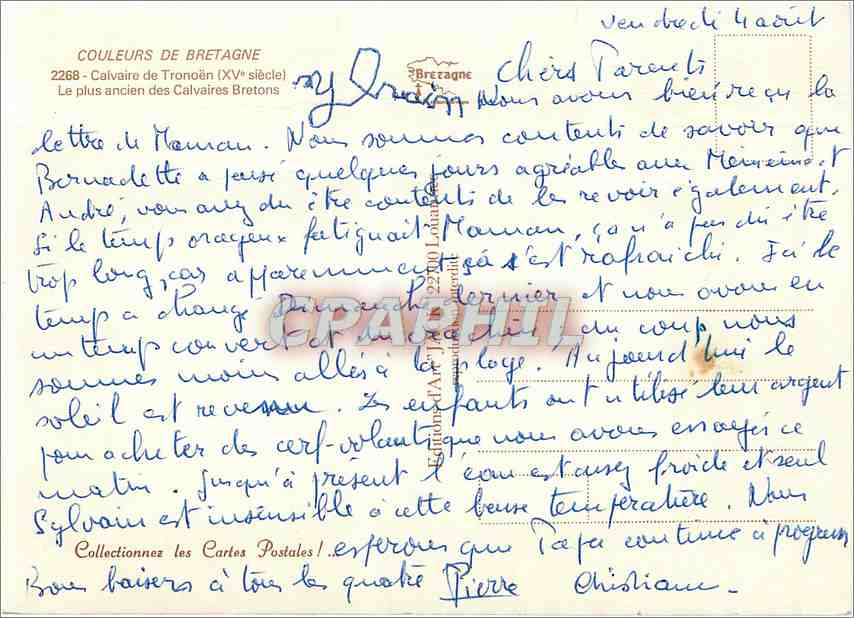 vendredi 4 août
COULEURS DE BRETAGNE
2268 - Calvaire de Tronoën (XVe siècle)
Le plus ancien des Calvaires Bretons
Bretagne
Chers Parents
Nous avons bien reçu la
lettre de Maman. Nous sommes contents de savoir que
Bernadette a passé quelques jours agréables avec et
André, vous avez du être contents de les revoir également.
Si le temps orageux fatiguait Maman, ça n'a pas dû être
trop long, car apparemment ça s'est rafraichi. Ici le
temps a changé Dimanche dernier et nous avons eu
un temps couvert et du coup nous
sommes moins allés à la plage. Aujourd'hui le
soleil est revenu. Les enfants ont utilisé leur argent
pour acheter des cerf-volants que nous avons essayés ce
matin. Jusqu'à présent l'eau est assez froide et seul
Sylvain est insensible à cette basse température. Nous
Collectionnez les Cartes Postales !.. espérons que Papa continue à progresser
Bons baisers à tous les quatre Pierre Christiane
Editions d'Art "JA 22 00 Louannec
reproduction interdite
CPAPHIL